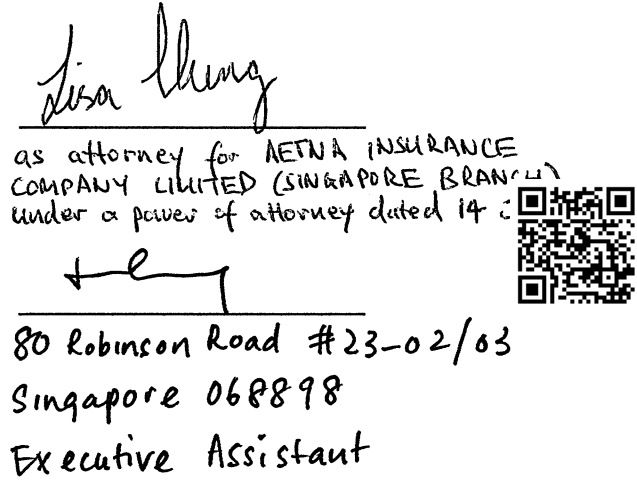 Lisa Chung
as attorney for AETNA INSURANCE
COMPANY LIMITED (SINGAPORE BRANCH)
under a power of attorney dated 14
80 Robinson Road #23-02/03
Singapore 068898
Executive Assistant